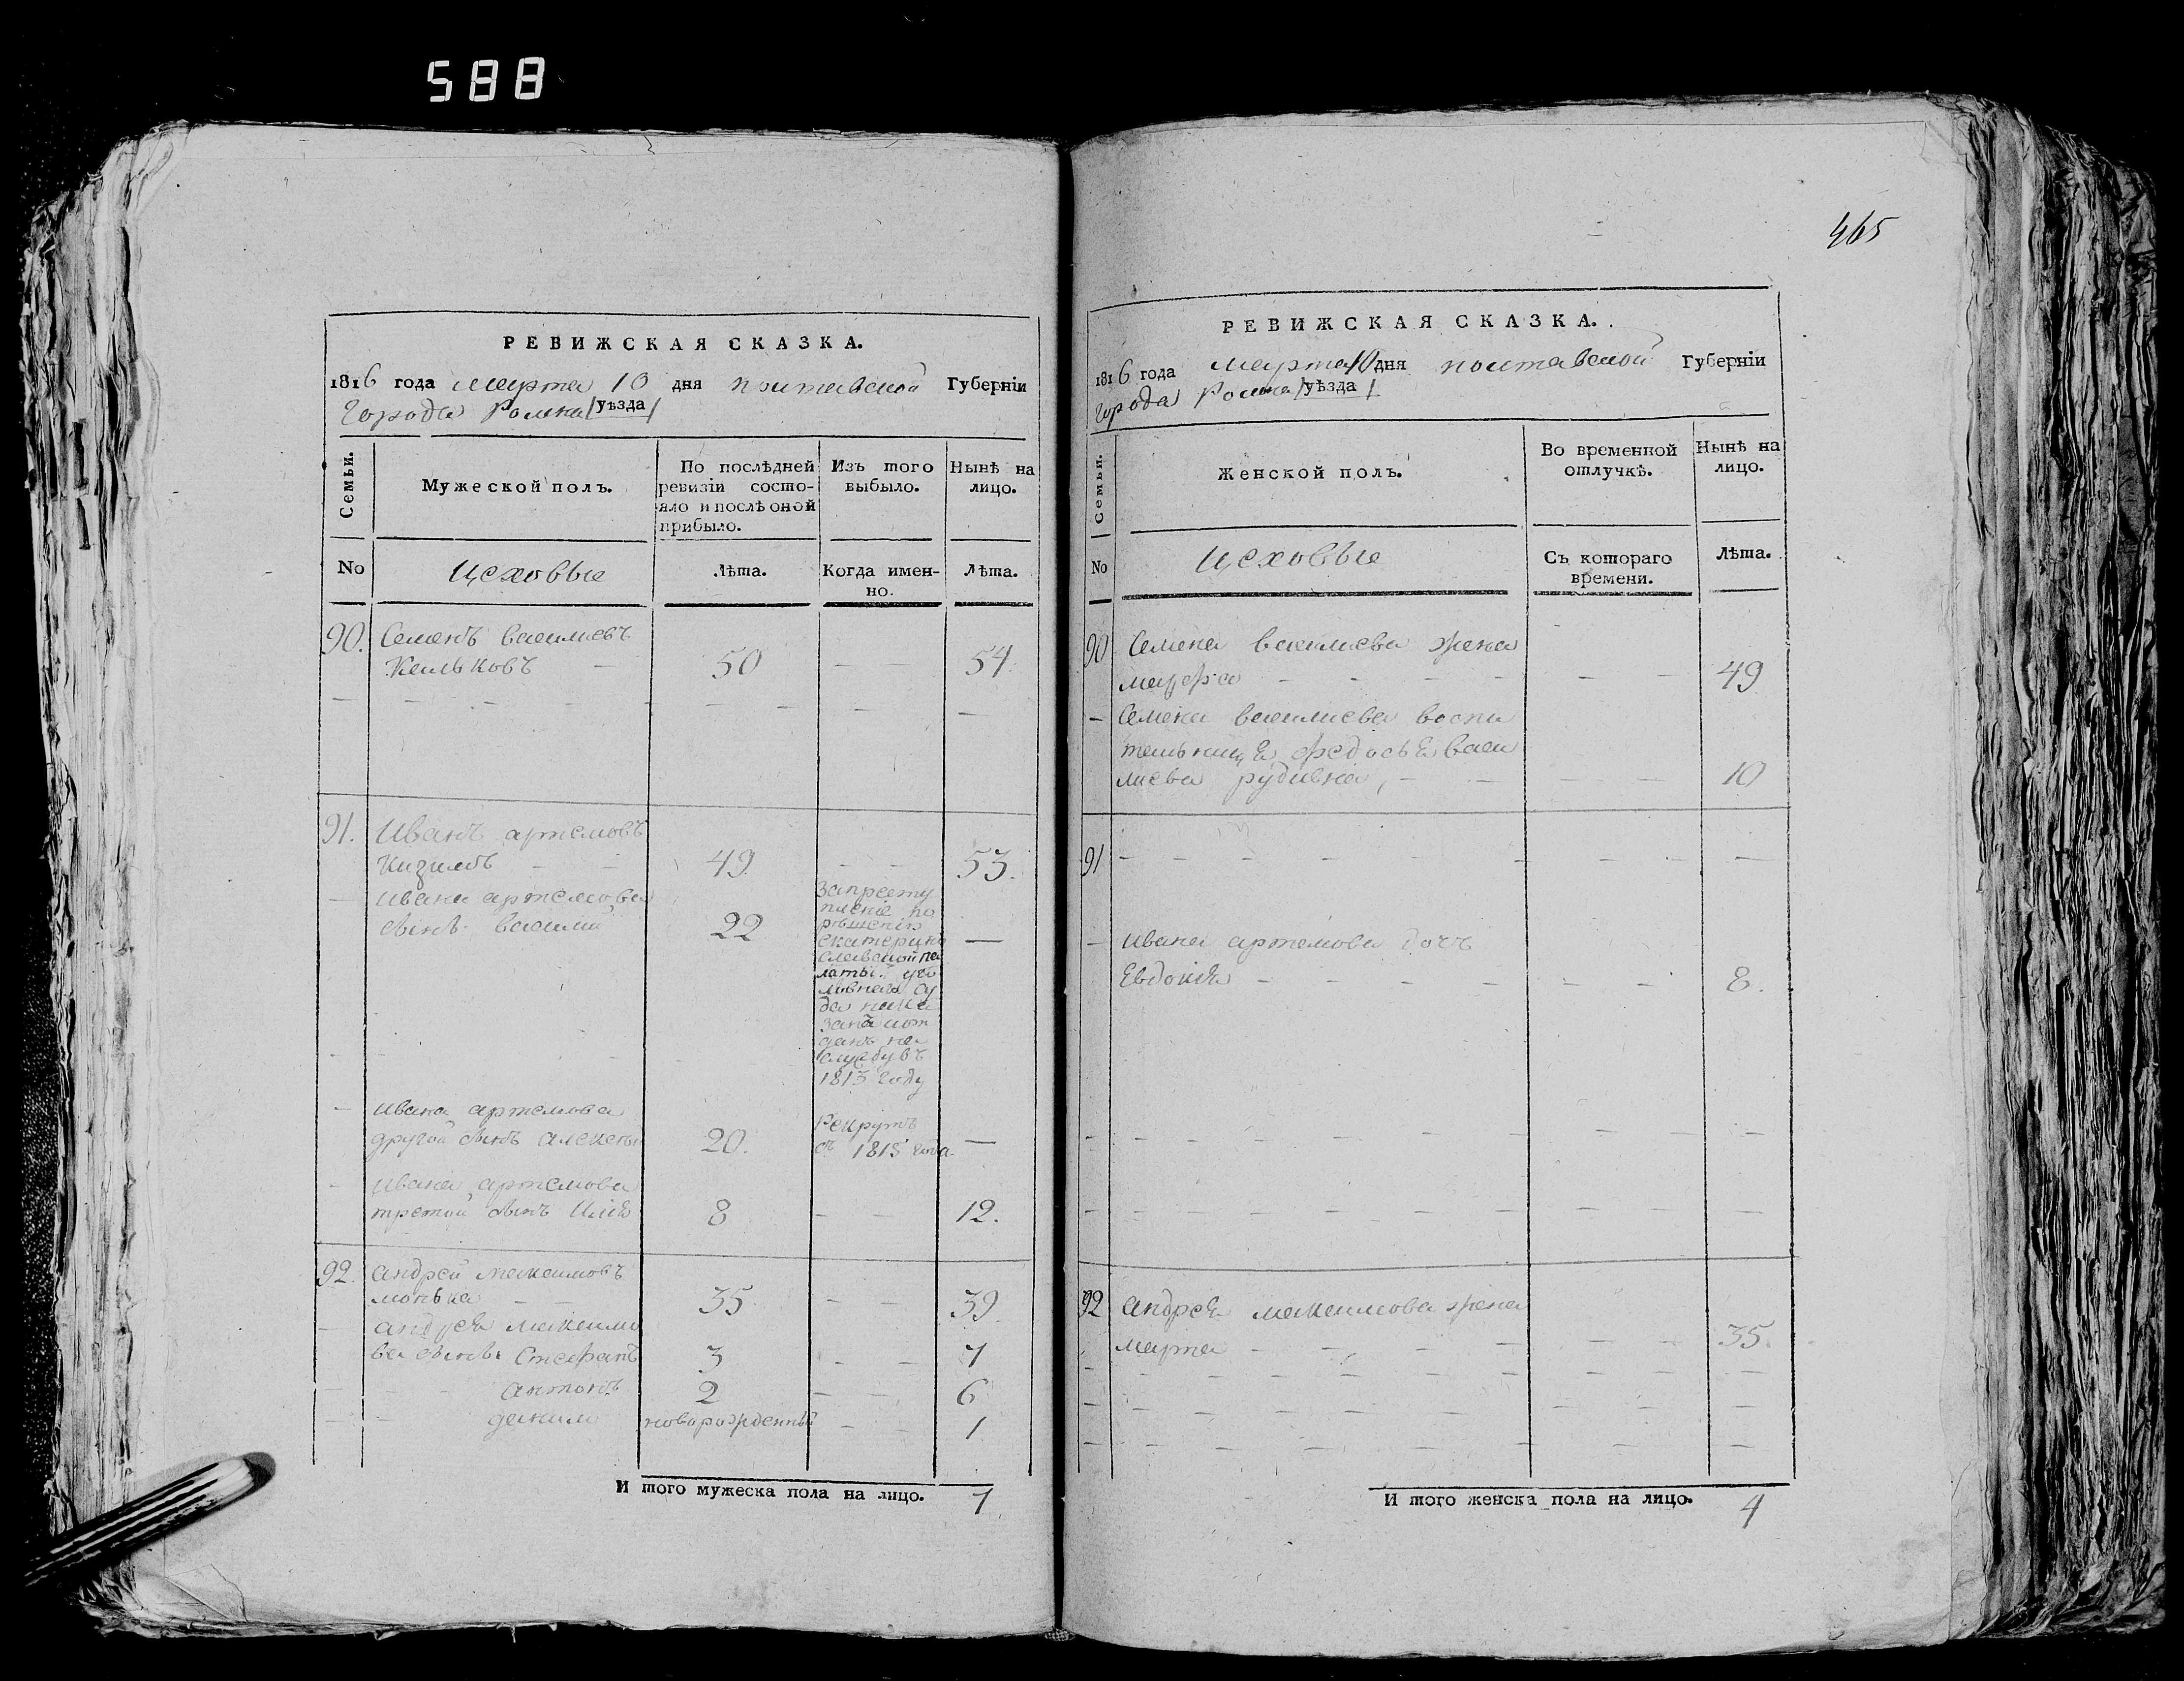 588
РЕВИЖСКАЯ СКАЗКА.
1816 года марта 10 дня полтавской Губерніи
города Ромна /уѣзда/
Семьи.
Мужеской полъ.
По послѣдней ревизіи состо-
яло и послѣ оной
прибыло.
Изъ того
выбыло.
Нынѣ на
лицо.
No
Цеховые
Лѣта.
Когда имен-
но.
Лѣта.
90. Семенъ василиевъ
50 — 54.
91. Иванъ артемовъ
Кизимъ — — 49 — — 53.
ивана артемова
сынъ василий 22 —
запресту
пление по
рѣшению
екатерино
славской па
латы уго
ловнаго су
да нака
занъ и от
данъ на
службу въ
1813 году
— ивана артемова
другой сынъ алексей 20. —
Рекрутъ
съ 1813 года
— ивана артемова
третой сынъ Илия 8 — — 12.
92. андрей максимовъ
монька — — 35 — — 39.
— андрея максимо
ва сынъ: Стефанъ 3 — — 7
антонъ 2 — — 6
данило новорожденный — — 1
И того мужеска пола на лицо. 7
465
РЕВИЖСКАЯ СКАЗКА.
1816 года марта 10 дня полтавской Губерніи
города Ромна /уѣзда/
Семьи.
Женской полъ.
Во временной
отлучкѣ.
Нынѣ на
лицо.
No
Цеховые
Съ котораго
времени.
Лѣта.
90 Семена василиева жена
марфа — — — — — — 49
— Семена василиева воспи
тельница федосья васи
лиева — — — — 10
91 — — — — — — — —
— ивана артемова дочь
Евдокия — — — — — — 8.
92 андрея максимова жена
марта — — — — — 35.
И того женска пола на лицо. 4